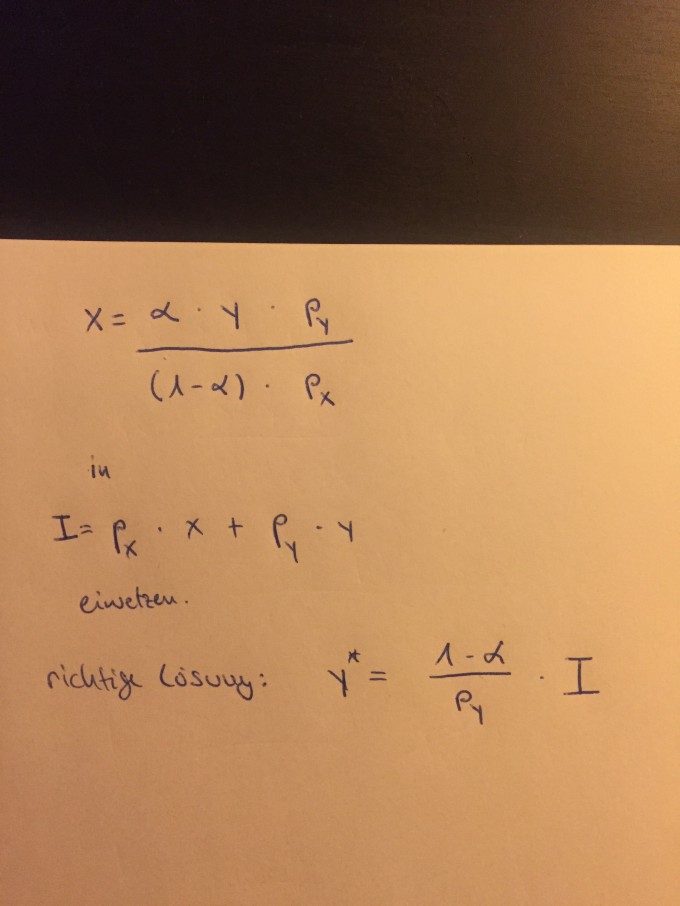 X = α · y · Py
(1-α) · Px
in
I = Px · x + Py · y
einsetzen.
richtige Lösung: y* = 1-α / Py · I